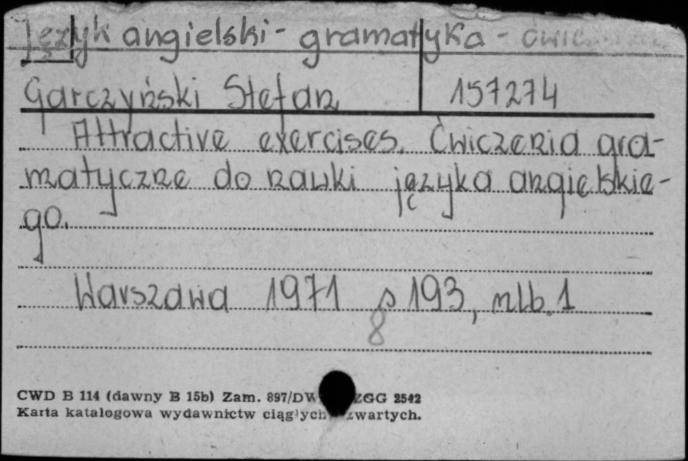 Język angielski - gramatyka -
Garczyński Stefan 157274
Attractive exercises. Ćwiczenia gra-
matyczne do nauki języka angielskie-
go.
Warszawa 1971 s 193, nlb. 1
8
CWD B 114 (dawny B 15b) Zam. 897/DW ZGG 2542
Karta katalogowa wydawnictw ciągłych zwartych.